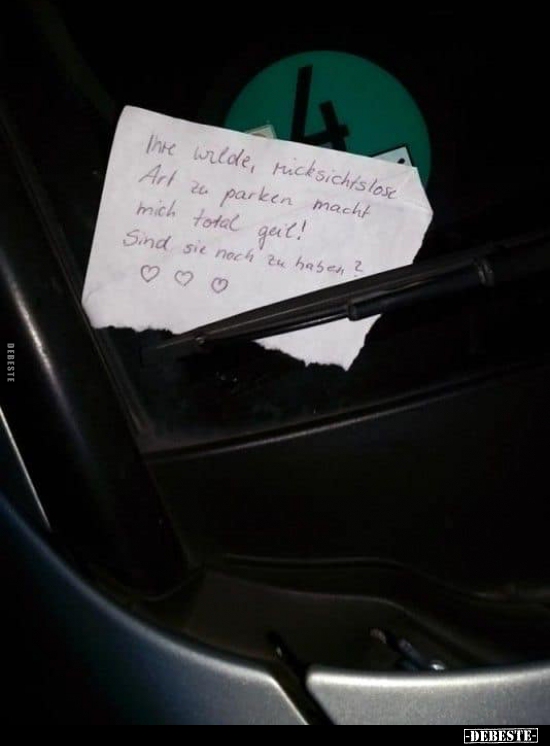 4
Ihre wilde, rücksichtslose
Art zu parken macht
mich total geil!
Sind sie noch zu haben?
♡ ♡ ♡
DEBESTE
-DEBESTE-